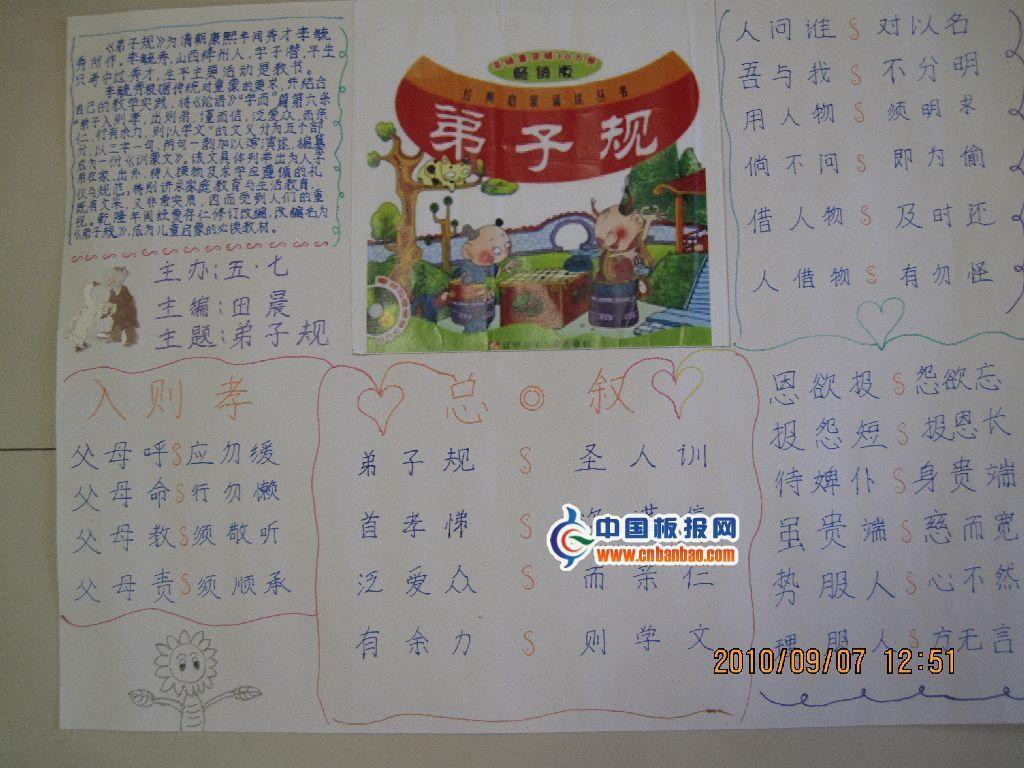 《弟子规》为清朝康熙年间秀才李毓
秀所作。李毓秀,山西绛州人,字子潜,平生
只考中过秀才,生平主要活动是教书。
李毓秀根据传统对童蒙的要求,并结合
自己的教学实践,将《论语》"学而"篇第六条
"弟子入则孝,出则弟,谨而信,泛爱众,而亲
仁,行有余力,则以学文"的文义分为五个部
分,以三字一句,两句一韵加以演述,编纂
成为一份《训蒙文》。该文具体列举出为人子
弟在家、出外、待人接物及求学应遵循的礼
仪与规范,特别讲求家庭教育与生活教育,
既有文采,又非常实用,因而受到人们的重
视。乾隆年间经贾存仁修订改编,改编名为
《弟子规》,成为儿童启蒙的必读教材。
主办:五·七
主编:田晨
主题:弟子规
畅销版
经典启蒙诵读丛书
弟子规
人问谁 对以名
吾与我 不分明
用人物 须明求
倘不问 即为偷
借人物 及时还
人借物 有勿怪
入则孝
父母呼 应勿缓
父母命 行勿懒
父母教 须敬听
父母责 须顺承
总叙
弟子规 圣人训
首孝悌
泛爱众 而亲仁
有余力 则学文
恩欲报 怨欲忘
报怨短 报恩长
待婢仆 身贵端
虽贵端 慈而宽
势服人 心不然
理服人 方无言
中国板报网
www.cnbanbao.com
2010/09/07 12:51